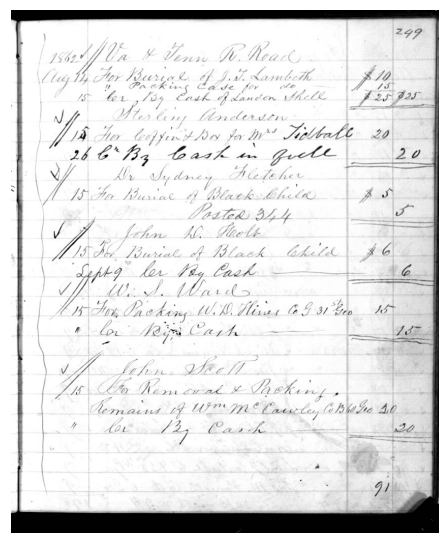 249
1862 Va & Tenn R. Road
Aug 14 For Burial of J. T. Lambeth $10
" Packing Case for do 15
15 Cr By Cash of Landon Shell $25 $25
Sterling Anderson
15 For Coffin & Box for Mrs Tidball 20
26 Cr By Cash in full 20
Dr Sydney Fletcher
15 For Burial of Black Child $5
Posted 344 5
John D. Holt
15 For Burial of Black Child $6
Sept 9 Cr By Cash 6
W. S. Ward
15 For Packing W. D. Hines Co G 31st Geo 15
" Cr By Cash 15
John Scott
15 For Removal & Packing
Remains of Wm McCawley Co B 60 Geo 20
" Cr By Cash 20
91